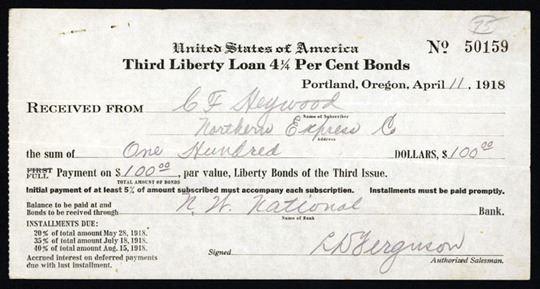 United States of America
No 50159
Third Liberty Loan 4¼ Per Cent Bonds
Portland, Oregon, April 11, 1918
RECEIVED FROM C F Heywood
Name of Subscriber
Northern Express Co
Address
the sum of One Hundred DOLLARS, $100.00
FIRST
FULL Payment on $100.00, par value, Liberty Bonds of the Third Issue.
TOTAL AMOUNT OF BONDS
Initial payment of at least 5% of amount subscribed must accompany each subscription. Installments must be paid promptly.
Balance to be paid at and
Bonds to be received through N. W. National Bank.
Name of Bank
INSTALLMENTS DUE:
20% of total amount May 28, 1918.
35% of total amount July 18, 1918.
40% of total amount Aug. 15, 1918.
Accrued interest on deferred payments
due with last installment.
Signed L D Ferguson
Authorized Salesman.